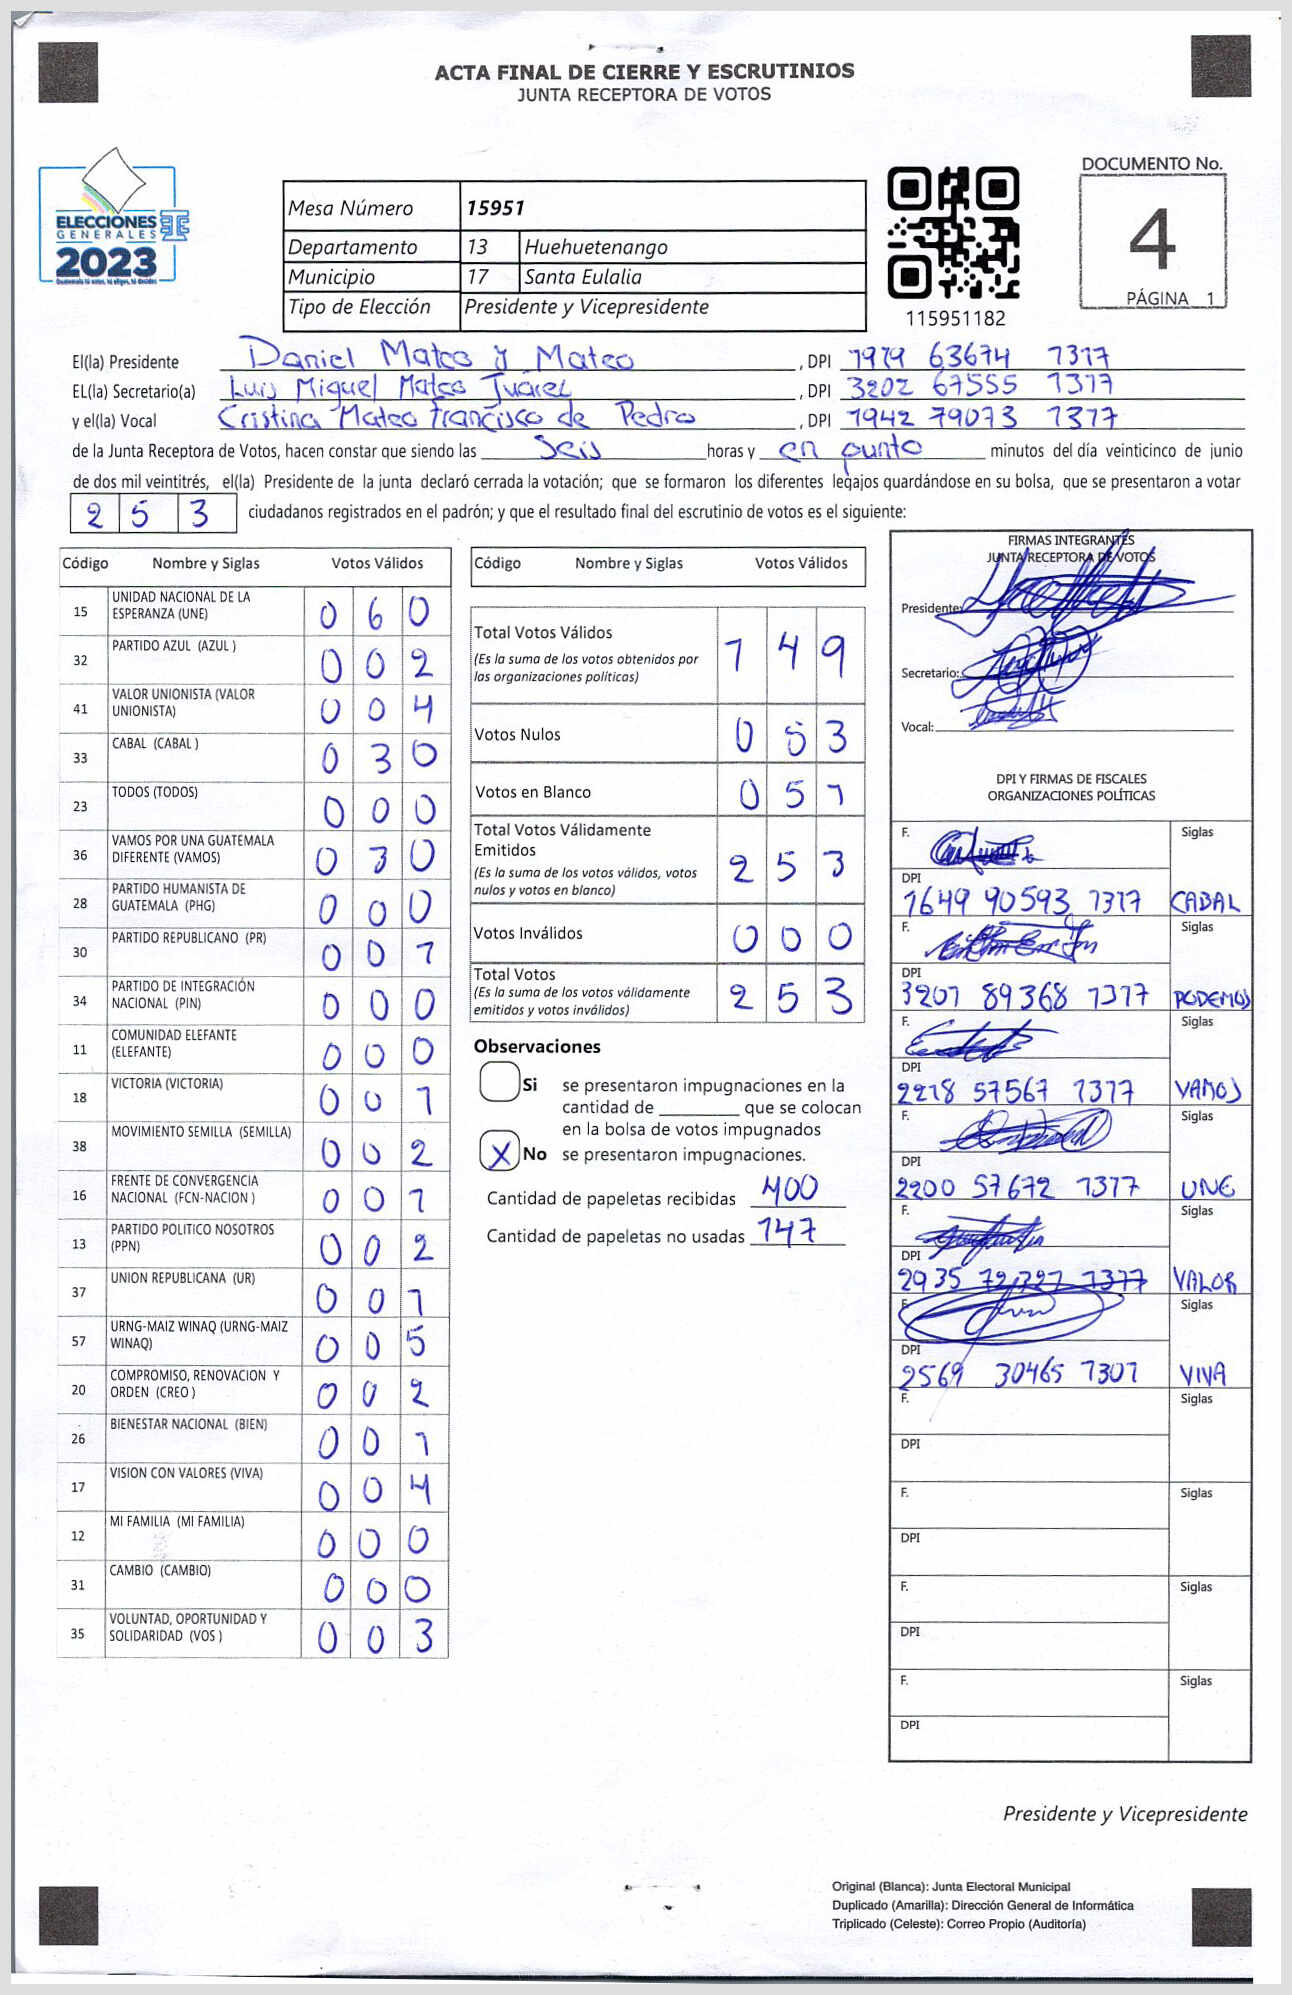 ACTA FINAL DE CIERRE Y ESCRUTINIOS
JUNTA RECEPTORA DE VOTOS
ELECCIONES
GENERALES
2023
Mesa Número 15951
Departamento 13 Huehuetenango
Municipio 17 Santa Eulalia
Tipo de Elección Presidente y Vicepresidente
115951182
DOCUMENTO No.
4
PÁGINA 1
El(la) Presidente Daniel Mateo y Mateo, DPI 1979 63674 1317
EL(la) Secretario(a) Luis Miguel Mateo Juárez, DPI 3202 67555 1317
y el(la) Vocal Cristina Mateo Francisco de Pedro, DPI 1942 79073 1317
de la Junta Receptora de Votos, hacen constar que siendo las Seis horas y en punto minutos del día veinticinco de junio
de dos mil veintitrés, el(la) Presidente de la junta declaró cerrada la votación; que se formaron los diferentes legajos guardándose en su bolsa, que se presentaron a votar
253 ciudadanos registrados en el padrón; y que el resultado final del escrutinio de votos es el siguiente:
Código Nombre y Siglas Votos Válidos
15 UNIDAD NACIONAL DE LA ESPERANZA (UNE) 060
32 PARTIDO AZUL (AZUL ) 002
41 VALOR UNIONISTA (VALOR UNIONISTA) 004
33 CABAL (CABAL ) 030
23 TODOS (TODOS) 000
36 VAMOS POR UNA GUATEMALA DIFERENTE (VAMOS) 030
28 PARTIDO HUMANISTA DE GUATEMALA (PHG) 000
30 PARTIDO REPUBLICANO (PR) 001
34 PARTIDO DE INTEGRACIÓN NACIONAL (PIN) 000
11 COMUNIDAD ELEFANTE (ELEFANTE) 000
18 VICTORIA (VICTORIA) 001
38 MOVIMIENTO SEMILLA (SEMILLA) 002
16 FRENTE DE CONVERGENCIA NACIONAL (FCN-NACION ) 001
13 PARTIDO POLITICO NOSOTROS (PPN) 002
37 UNION REPUBLICANA (UR) 001
57 URNG-MAIZ WINAQ (URNG-MAIZ WINAQ) 005
20 COMPROMISO, RENOVACION Y ORDEN (CREO ) 002
26 BIENESTAR NACIONAL (BIEN) 001
17 VISION CON VALORES (VIVA) 004
12 MI FAMILIA (MI FAMILIA) 000
31 CAMBIO (CAMBIO) 000
35 VOLUNTAD, OPORTUNIDAD Y SOLIDARIDAD (VOS ) 003
Código Nombre y Siglas Votos Válidos
Total Votos Válidos 149
(Es la suma de los votos obtenidos por
las organizaciones políticas)
Votos Nulos 053
Votos en Blanco 051
Total Votos Válidamente
Emitidos 253
(Es la suma de los votos válidos, votos
nulos y votos en blanco)
Votos Inválidos 000
Total Votos 253
(Es la suma de los votos válidamente
emitidos y votos inválidos)
Observaciones
Si se presentaron impugnaciones en la
cantidad de ________ que se colocan
en la bolsa de votos impugnados
X No se presentaron impugnaciones.
Cantidad de papeletas recibidas 400
Cantidad de papeletas no usadas 147
FIRMAS INTEGRANTES
JUNTA RECEPTORA DE VOTOS
Presidente:
Secretario:
Vocal:
DPI Y FIRMAS DE FISCALES
ORGANIZACIONES POLÍTICAS
F. Siglas
DPI
1649 90593 1317 CABAL
F. Siglas
DPI
3201 89368 1317 PODEMOS
F. Siglas
DPI
2218 57567 1317 VAMOS
F. Siglas
DPI
2200 57672 1317 UNE
F. Siglas
DPI
2935 1317 VALOR
F. Siglas
DPI
2569 30465 1301 VIVA
F. Siglas
DPI
F. Siglas
DPI
F. Siglas
DPI
F. Siglas
DPI
Presidente y Vicepresidente
Original (Blanca): Junta Electoral Municipal
Duplicado (Amarilla): Dirección General de Informática
Triplicado (Celeste): Correo Propio (Auditoría)